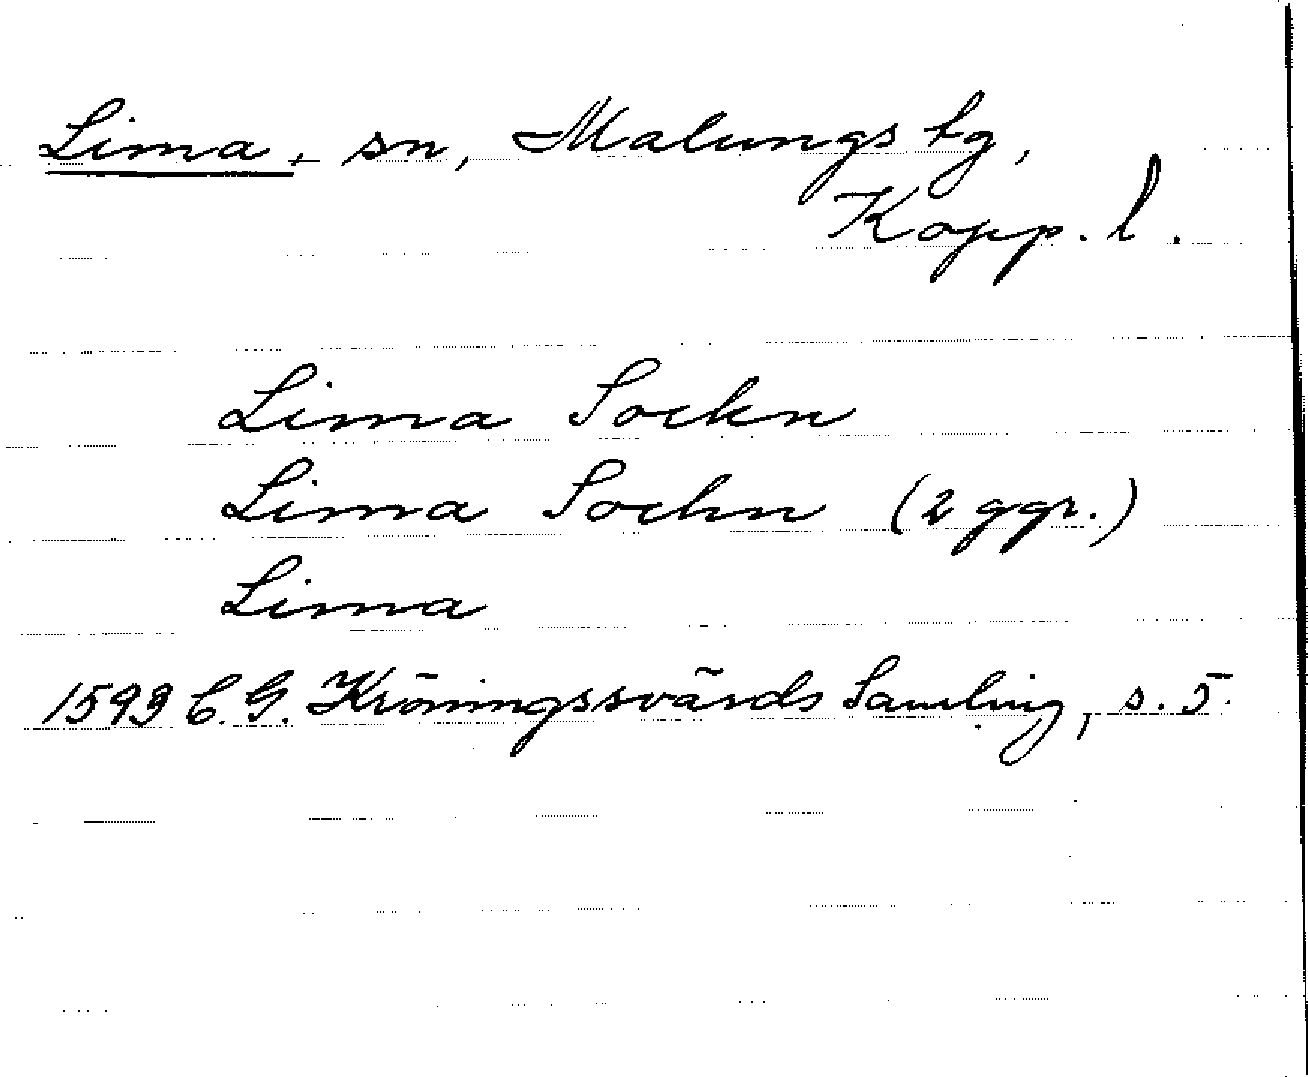 Lima, sn, Malungs tg,
Kopp. l.
Lima Sockn
Lima Sochn (2 ggr.)
Lima
1593 C. G. Kröningssvärds Samling, s. 5.